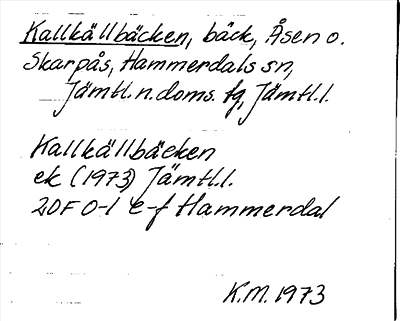 Kallkällbäcken, bäck, Åsen o.
Skarpås, Hammerdals sn,
Jämtl.n.doms. tg, Jämtl.l.
Kallkällbäcken
ek (1973) Jämtl.l.
20F 0-1 e-f Hammerdal
K.M. 1973